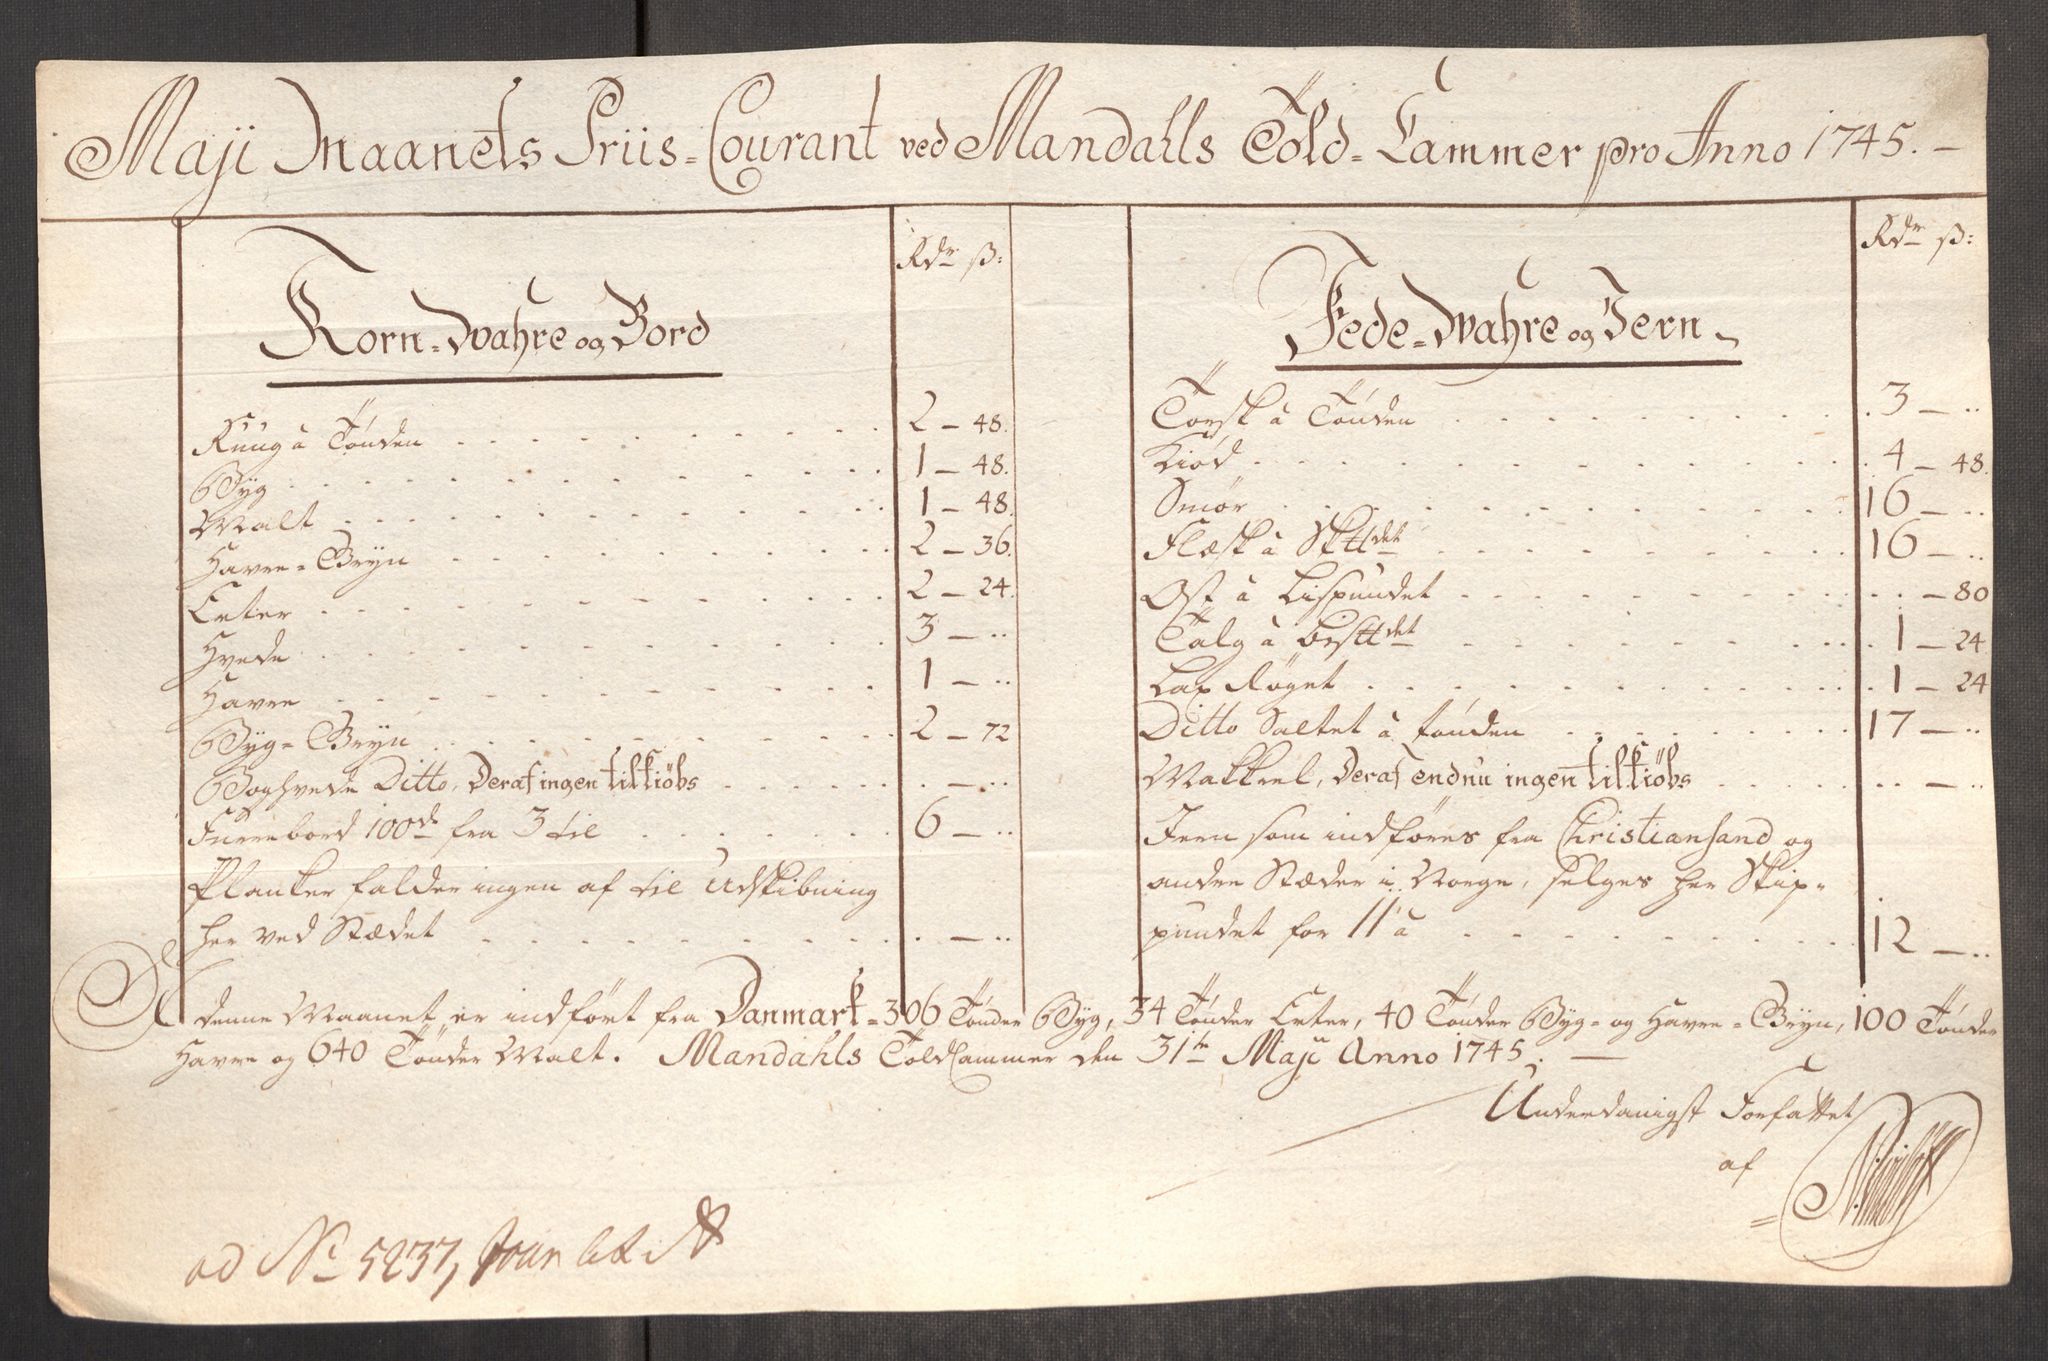 Maji Maanets Priis-Courant ved Mandahls Told-Cammer pro Anno 1745.
Rdr ß:
Korn-Wahre og Bord
Ruug à Tønden 2 - 48.
Byg 1 - 48.
Malt 1 - 48.
Havre-Gryn 2 - 36.
Erter 2 - 24.
Hvede 3 - ..
Havre 1 - ..
Byg-Gryn 2 - 72
Boghvede Ditto, Deraf ingen tilkiøbs . - ..
Furrebord 100de fra 3 til 6 - ..
Planker falder ingen af til Udskibning
her ved Stædet . - ..
Rdr ß:
Fede-Wahre og Jern
Torsk à Tønden 3 - ..
Kiød 4 - 48.
Smør 16 - ..
Flæsk à Skttdet 16 - ..
Ost à Lispundet . - 80
Talg à Bisttdet 1 - 24
Lax Røget 1 - 24
Ditto Saltet à tønden 17 - ..
Makkrel, Deraf endnu ingen tilkiøbs .. - ..
Jern som indføres fra Christiansand og
andre Stæder i Norge, selges her Skip-
pundet for 11 à 12 - ..
I denne Maanet er indført fra Danmark = 306 Tønder Byg, 34 Tønder Erter, 40 Tønder Byg- og Havre-Gryn, 100 Tønder
Havre og 640 Tønder Malt. Mandahls ToldCammer den 31te Maji Anno 1745.
Underdanigst Forfattet
af
ad No 5237,